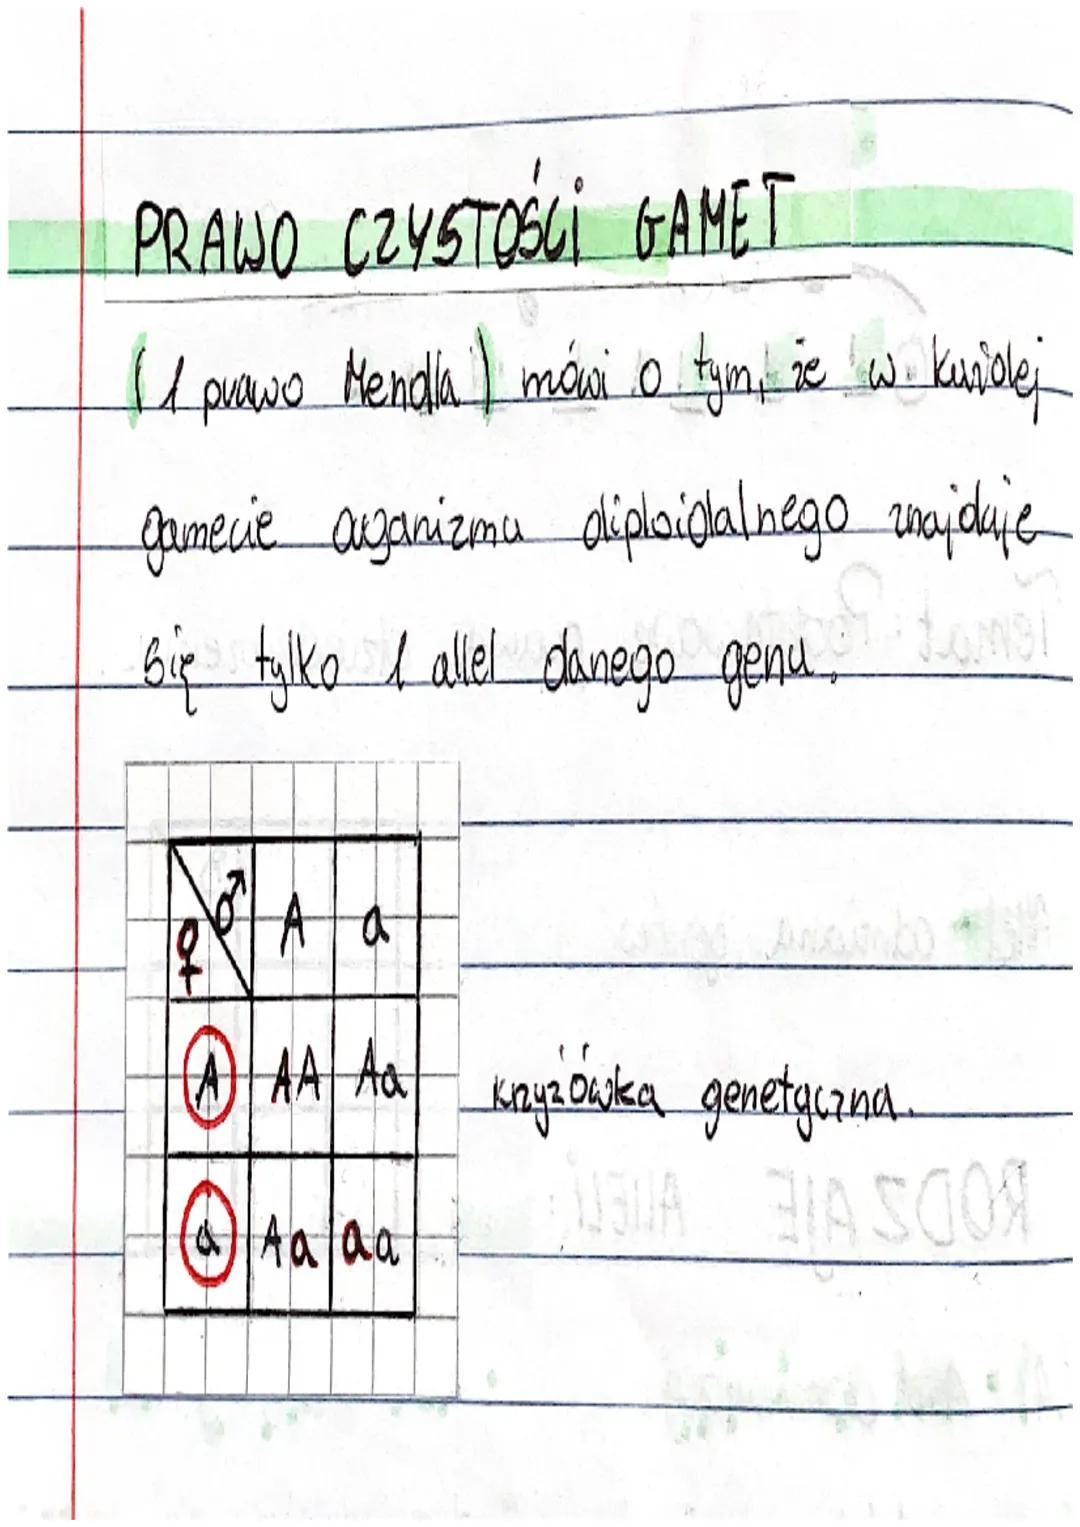 PRAWO CZYSTOŚCI GAMET
(1 prawo Mendla) mówi o tym, że w każdej
gamecie organizmu diploidalnego znajduje
się tylko 1 allel danego genu.
♀ ♂ A a
A AA Aa
krzyżówka genetyczna.
a Aa aa